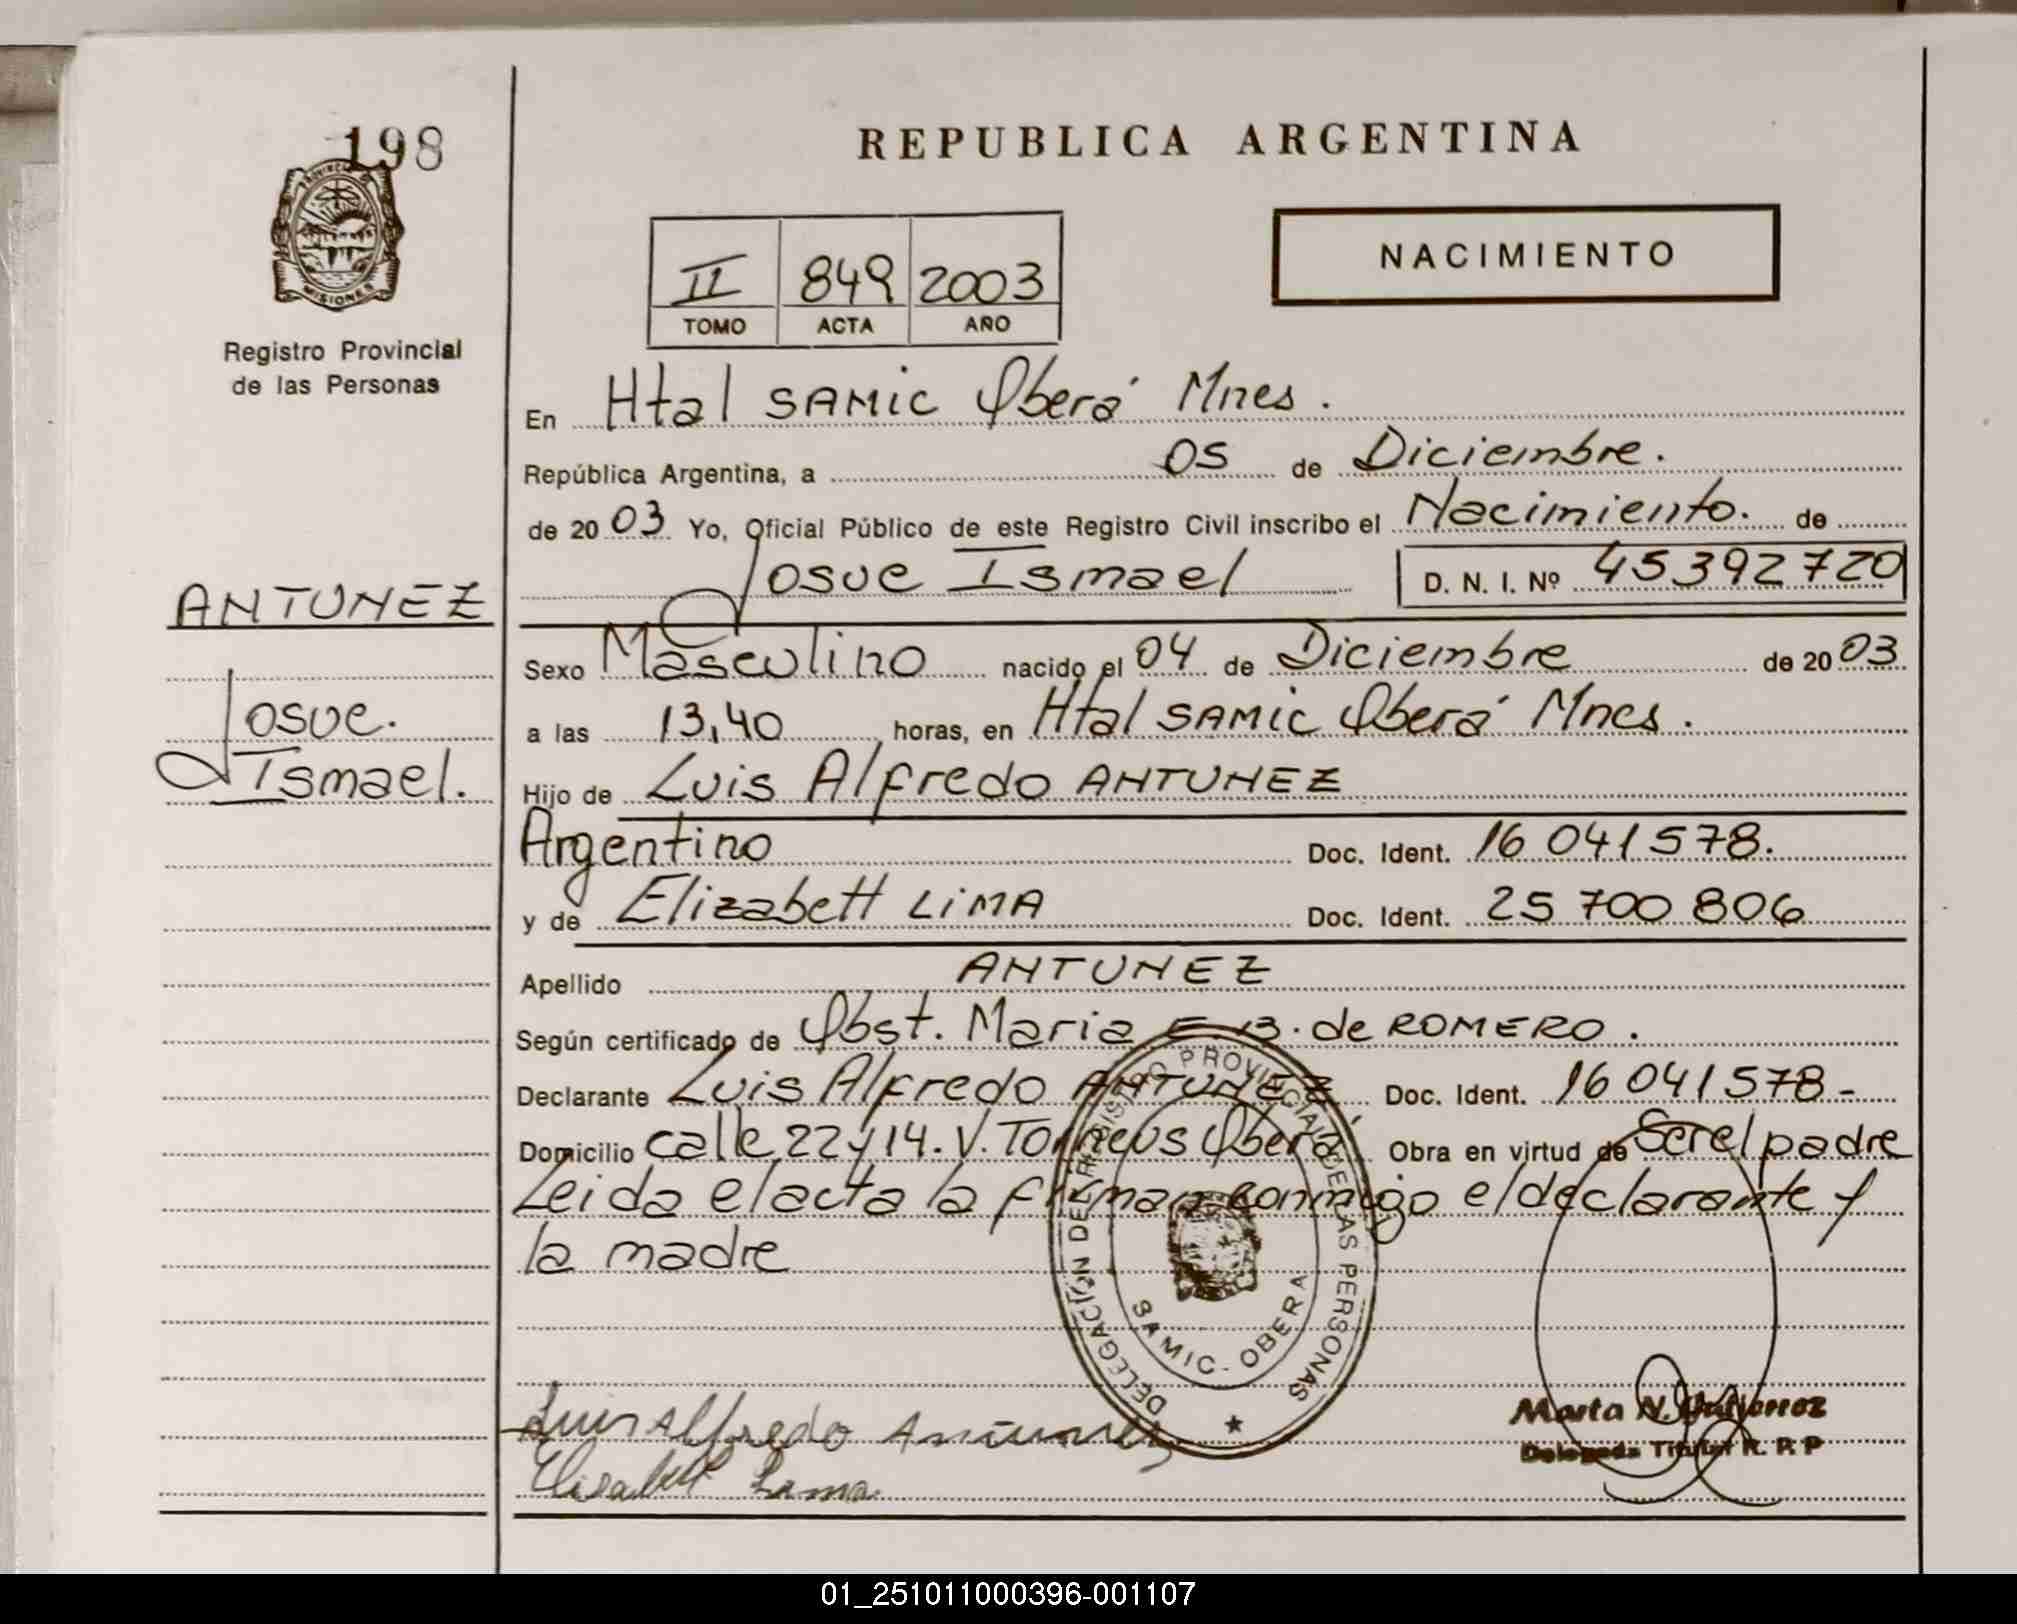 198
REPUBLICA ARGENTINA
PROVINCIA DE
MISIONES
Registro Provincial
de las Personas
NACIMIENTO
II 849 2003
TOMO ACTA AÑO
En Htal SAMIC Oberá Mnes.
República Argentina, a 05 de Diciembre.
de 2003 Yo, Oficial Público de este Registro Civil inscribo el Nacimiento. de
Josue Ismael D. N. I. Nº 45392720
ANTUNEZ
Josue.
Ismael.
Sexo Masculino nacido el 04 de Diciembre de 2003
a las 13,40 horas, en Htal SAMIC Oberá Mnes.
Hijo de Luis Alfredo ANTUNEZ
Argentino Doc. Ident. 16 041 578.
y de Elizabett LIMA Doc. Ident. 25 700 806
Apellido ANTUNEZ
Según certificado de Obst. Maria E B. de ROMERO.
Declarante Luis Alfredo ANTUNEZ Doc. Ident. 16 041 578-
Domicilio calle 22 y 14. V. Torneus Oberá Obra en virtud de Ser el padre
Leida el acta la firman conmigo el declarante y
la madre
DELEGACIÓN DEL REGISTRO PROVINCIAL DE LAS PERSONAS
SAMIC - OBERA
Luis Alfredo Antunez
Elisabett Lima
Marta N. Gutierrez
Delegada Titular R. P. P
01_251011000396-001107